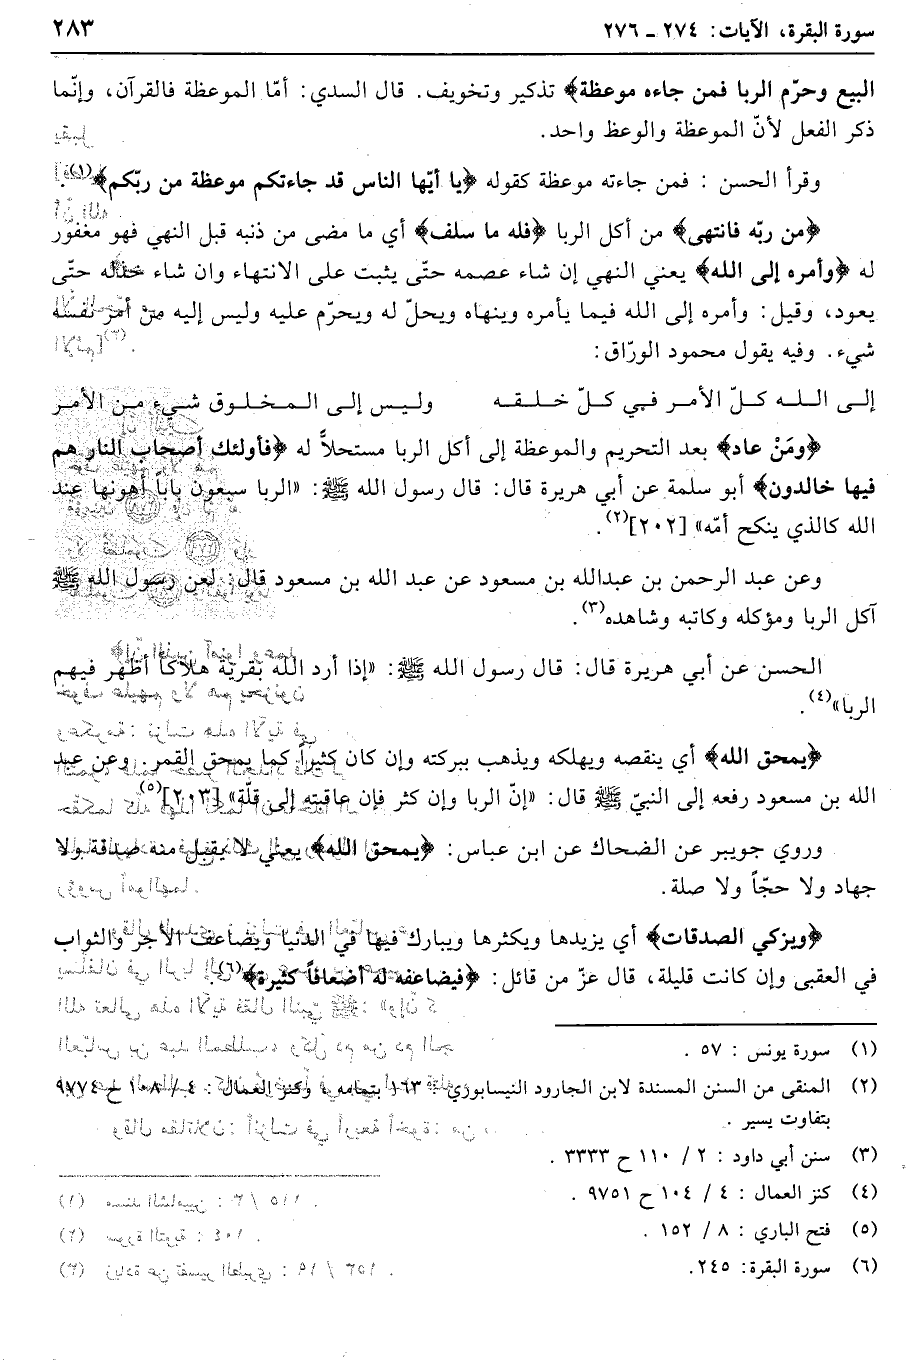 سورة البقرة، الآيات: ٢٧٤ ـ ٢٧٦ ٢٨٣
البيع وحرّم الربا فمن جاءه موعظة﴾ تذكير وتخويف. قال السدي: أمّا الموعظة فالقرآن، وإنّما
ذكر الفعل لأنّ الموعظة والوعظ واحد.
وقرأ الحسن : فمن جاءته موعظة كقوله ﴿يا أيّها الناس قد جاءتكم موعظة من ربّكم﴾(١).
﴿من ربّه فانتهى﴾ من أكل الربا ﴿فله ما سلف﴾ أي ما مضى من ذنبه قبل النهي فهو مغفور
له ﴿وأمره إلى الله﴾ يعني النهي إن شاء عصمه حتّى يثبت على الانتهاء وان شاء خذله حتّى
يعود، وقيل: وأمره إلى الله فيما يأمره وينهاه ويحلّ له ويحرّم عليه وليس إليه من أمر نفسه
شيء. وفيه يقول محمود الورّاق:
إلى الله كلّ الأمر في كلّ خلقه وليس إلى المخلوق شيء من الأمر
﴿ومَنْ عاد﴾ بعد التحريم والموعظة إلى أكل الربا مستحلاًّ له ﴿فأولئك أصحاب النار هم
فيها خالدون﴾ أبو سلمة عن أبي هريرة قال: قال رسول الله ﷺ: «الربا سبعون باباً أهونها عند
الله كالذي ينكح أمّه» [٢٠٢](٢).
وعن عبد الرحمن بن عبدالله بن مسعود عن عبد الله بن مسعود قال: لعن رسول الله ﷺ
آكل الربا ومؤكله وكاتبه وشاهده(٣).
الحسن عن أبي هريرة قال: قال رسول الله ﷺ: «إذا أرد الله بقرية هلاكاً أظهر فيهم
الربا»(٤).
﴿يمحق الله﴾ أي ينقصه ويهلكه ويذهب ببركته وإن كان كثيراً كما يمحق القمر. وعن عبد
الله بن مسعود رفعه إلى النبيّ ﷺ قال: «إنّ الربا وإن كثر فإن عاقبته إلى قلّة» [٢٠٣](٥).
وروي جويبر عن الضحاك عن ابن عباس: ﴿يمحق الله﴾ يعني لا يقبل منه صدقة ولا
جهاد ولا حجّاً ولا صلة.
﴿ويزكي الصدقات﴾ أي يزيدها ويكثرها ويبارك فيها في الدنيا ويضاعف الأجر والثواب
في العقبى وإن كانت قليلة، قال عزّ من قائل: ﴿فيضاعفه له أضعافاً كثيرة﴾(٦).
(١) سورة يونس : ٥٧ .
(٢) المنقى من السنن المسندة لابن الجارود النيسابوري : ١٦٣ بتمامه ، وكنز العمال : ٤ / ١٠٨ ح ٩٧٧٤
بتفاوت يسير .
(٣) سنن أبي داود : ٢ / ١١٠ ح ٣٣٣٣ .
(٤) كنز العمال : ٤ / ١٠٤ ح ٩٧٥١ .
(٥) فتح الباري : ٨ / ١٥٢ .
(٦) سورة البقرة: ٢٤٥.